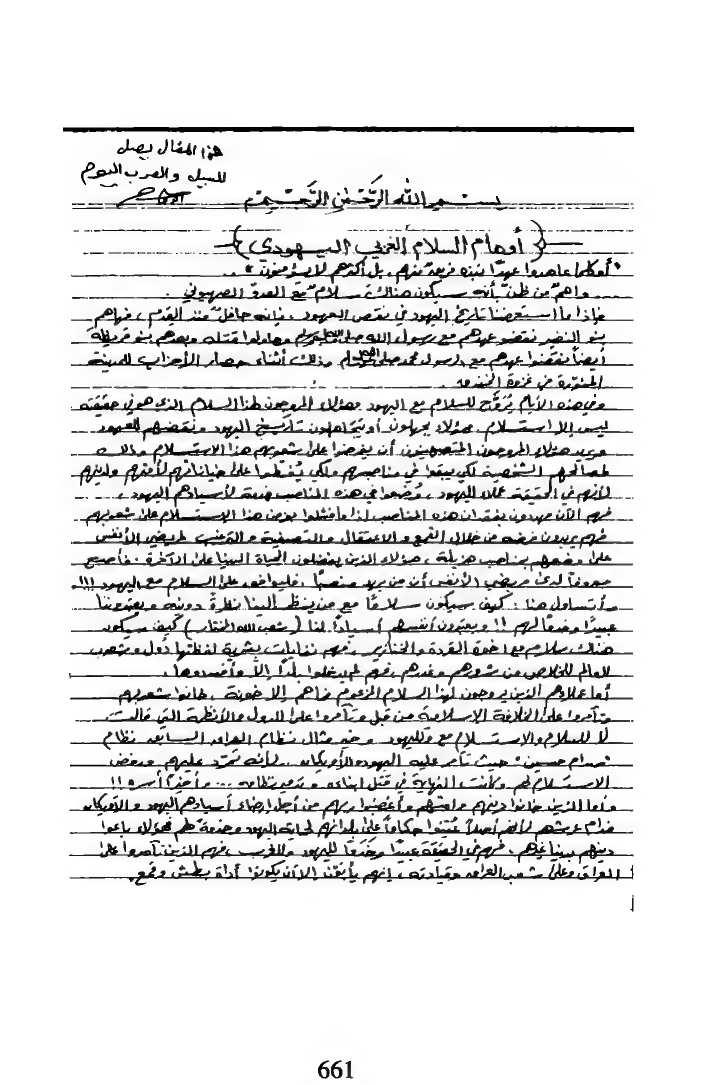 هذا المقال يصل
للسبيل والعرب اليوم
بسم الله الرحمن الرحيم
{ أوهام السلام العربي اليهودي }
"أوكلما عاهدوا عهدًا نبذه فريق منهم، بل أكثرهم لا يؤمنون" ..
واهمٌ من ظنّ بأنه سيكون هناك سلامٌ مع العدوّ الصهيوني .
فإذا ما استعرضنا تاريخ اليهود في نقض العهود ، فإنه حافلٌ منذ القدم ، فها هم
بنو النضير نقضو عهدهم مع رسول الله صلى الله عليه وسلم وحاولوا قتله وبعدهم بنو قريظة
أيضاً نقضوا عهدهم مع الرسول محمد صلى الله عليه وسلم وذلك أثناء حصار الأحزاب للمدينة
المنوّرة في غزوة الخندق .
وفي هذه الأيام يُروَّج للسلام مع اليهود وهؤلاء المروجون لهذا السلام الذي هو في حقيقته
ليس إلا استسلام ، هؤلاء يجهلون أو يتجاهلون تاريخ اليهود ونقضهم للعهود
ويريد هؤلاء المروجون المتصهينون أن يفرضوا على شعوبهم هذا الاستسلام وذلك
لمصالحهم الشخصية لكي يبقوا في مناصبهم ولكي يُغطّوا على خياناتهم لأمتهم ولدينهم
لأنهم في الحقيقة عملاء لليهود ، وُضعوا في هذه المناصب خدمة لأسيادهم اليهود ،
فهم الآن مهددون بفقدان هذه المناصب إذا ما فشلوا بفرض هذا الاستسلام على شعوبهم
فهم يريدون فرضه من خلال القمع والاعتقال والتصفية والترغيب لمريضي الأنفس
على وضعهم بمناصب هزيلة ، هؤلاء الذين يفضلون الحياة الدنيا على الآخرة . فأصبح
معروفاً لدى مريضي الأنفس أن من يريد منصباً ، فليوافق على السلام مع اليهود !!!.
وأتساءل هنا : كيف سيكون سلامًا مع من ينظر إلينا نظرةً دونية ويعتبروننا
عبيدًا وخدمًا لهم !! ويعتبرون أنفسهم أسيادًا لنا (شعب الله المختار) كيف سيكون
هناك سلام مع اخوة القردة والخنازير . فهم نفايات بشرية لفظتها دُول وشعوب
العالم للخلاص من شرورهم وغدرهم ، فهم لم يدخلوا بلدًا إلا وأفسدوها .
أما عملاؤهم الذين يروجون لهذا السلام المزعوم فما هم إلا خونة ، خانوا شعوبهم
وتآمروا على الخلافة الإسلامية من قبل وتآمروا على الدول والأنظمة التي قالت
لا للسلام والاستسلام مع ولليهود وخير مثال نظام العراق السابق نظام
"صدام حسين" حيث تآمر عليه اليهود والأمريكان .. لأنه تمرّد عليهم ورفض
الاستسلام لهم وكانت النهاية في قتل أبناءه وتدمير نظامه ... وأخيرًا أسره !!
وأما الذين خانوا دينهم وأمتهم وأغضبوا ربهم من أجل إرضاء أسيادهم اليهود والأمريكان
لأنهم أصلاً عُيّنوا حكاماً على بلدانهم لحماية اليهود وخدمةً لهم فهؤلاء باعوا
دينهم بدنيا غيرهم . فهم في الحقيقة عبيدًا وخدمًا لليهود وللغرب ، فهم الذين تآمروا على
العراق وعلى شعب العراق وقيادته ، إنهم يأبَون إلا أن يكونوا أداة بطش وقمع .
661